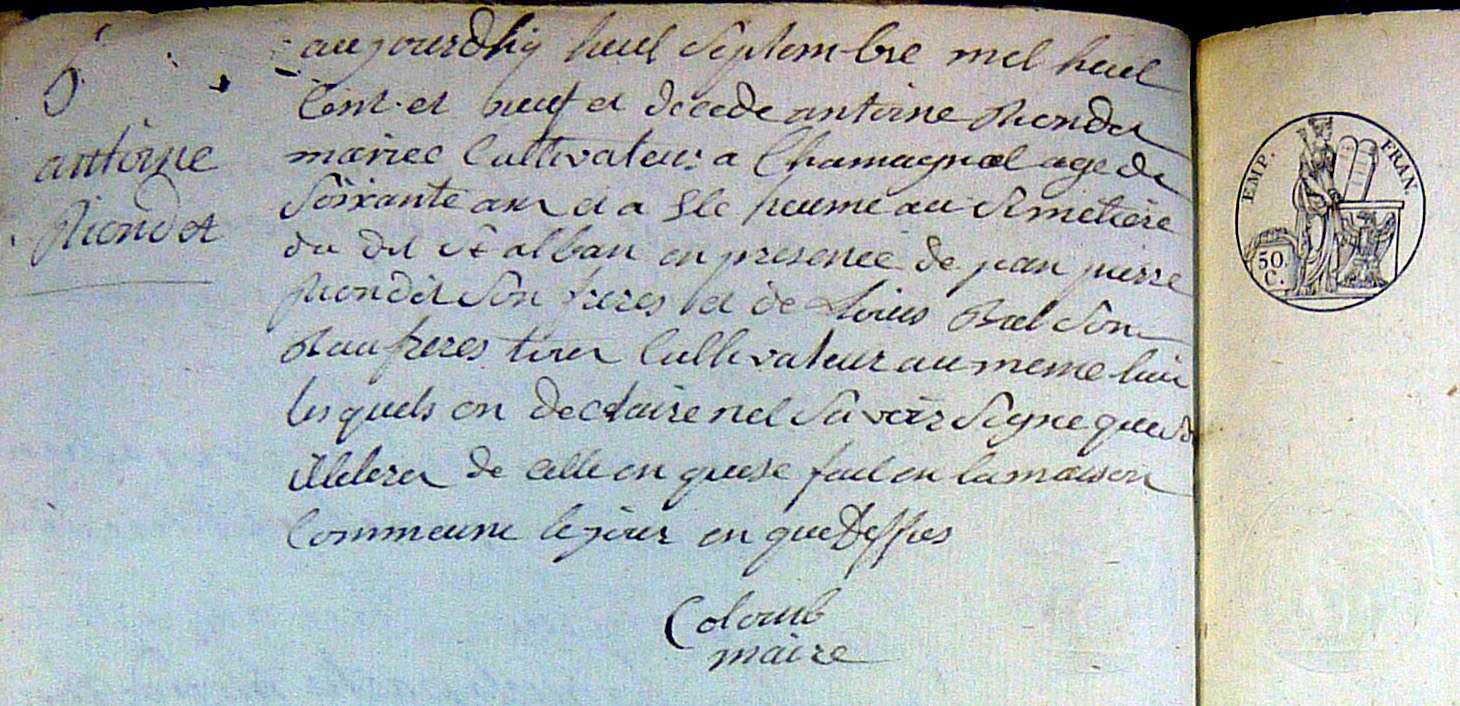 6
antoine
Riondet
aujourdhij heuel Septembre mel heuel
Cent et neuf et decede antoine Riondet
mariee Cultivateur a Chamagnol age de
Soixante ans et a Ele heume au Simetiere
du dit St alban en presence de jean pierre
Riondet Son freres et de Louis Bal Son
Baufreres tous Cultivateur au meme lieu
les quels on declaire nel Savoir Signe que de
de celle en quese fuel en la maison
Commeune le jour en que Dessus
Colomb
maire
EMP. FRAN
50 C.